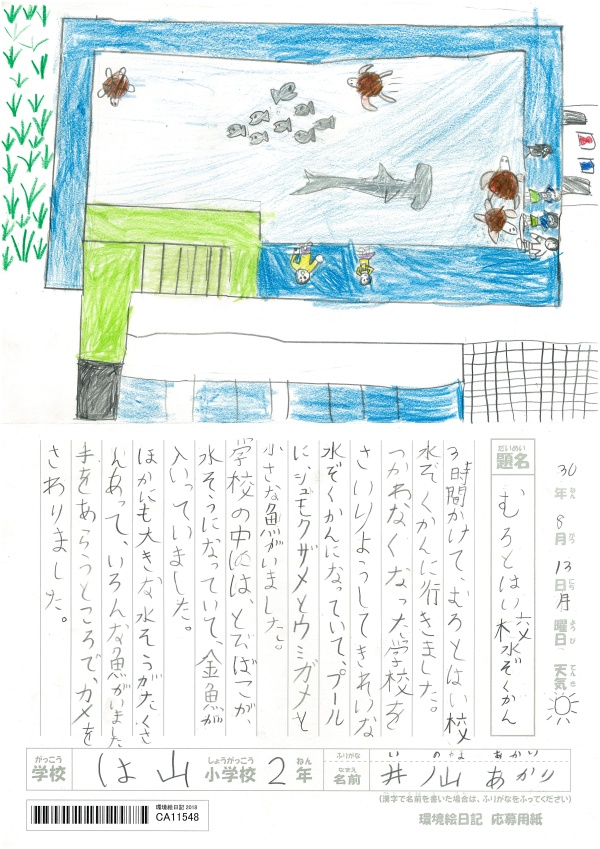 30年ねん8月がつ13日にち月曜日ようび天気てんき
だいめい
題名
むろとはい校水ぞくかん
3時間かけて、むろとはい校
水ぞくかんに行きました。
つかわなくなった学校を
さいりようしてきれいな
水ぞくかんになっていて、プール
に、シュモクザメとウミガメと
小さな魚がいました。
学校の中には、とびばこが、
水そうになっていて、金魚が
入っていました。
ほかにも大きな水そうがたくさ
んあって、いろんな魚がいました
手をあらうところで、カメを
さわりました。
がっこう しょうがっこう ねん
学校 は山 小学校 2年
ふりがな あかり
なまえ
名前 あかり
(漢字で名前を書いた場合は、ふりがなをふってください)
環境絵日記 2018
CA11548
環境絵日記 応募用紙